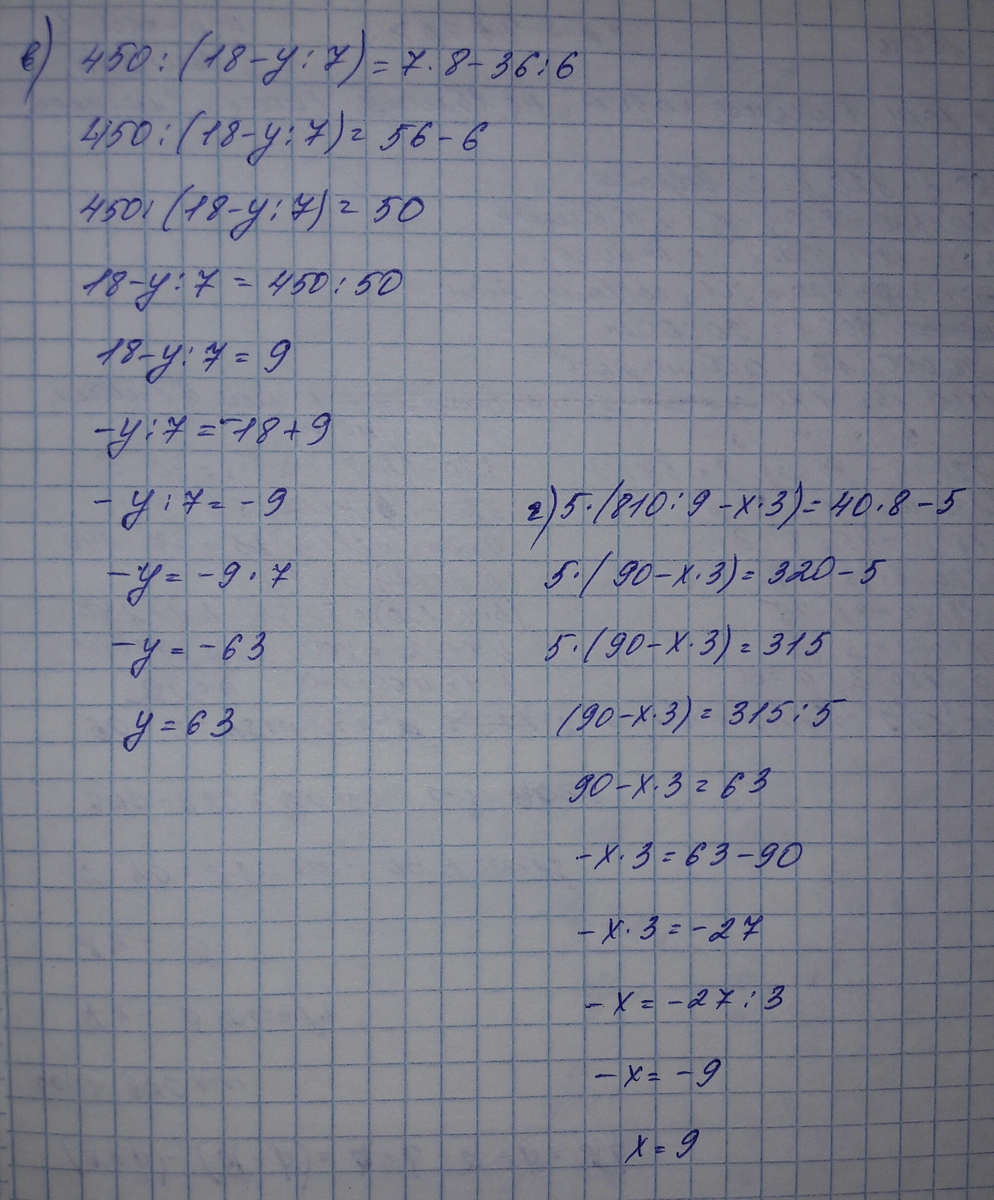 в) 450 : (18 - y : 7) = 7 · 8 - 36 : 6
450 : (18 - y : 7) = 56 - 6
450 : (18 - y : 7) = 50
18 - y : 7 = 450 : 50
18 - y : 7 = 9
- y : 7 = -18 + 9
- y : 7 = - 9
- y = - 9 · 7
- y = - 63
y = 63
г) 5 · (810 : 9 - x · 3) = 40 · 8 - 5
5 · (90 - x · 3) = 320 - 5
5 · (90 - x · 3) = 315
(90 - x · 3) = 315 : 5
90 - x · 3 = 63
- x · 3 = 63 - 90
- x · 3 = - 27
- x = - 27 : 3
- x = - 9
x = 9